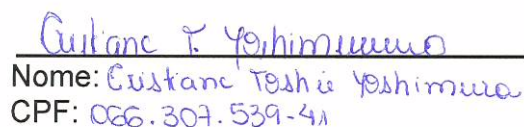 Cristiane T. Yoshimura
Nome: Cristiane Toshie Yoshimura
CPF: 066.307.539-41